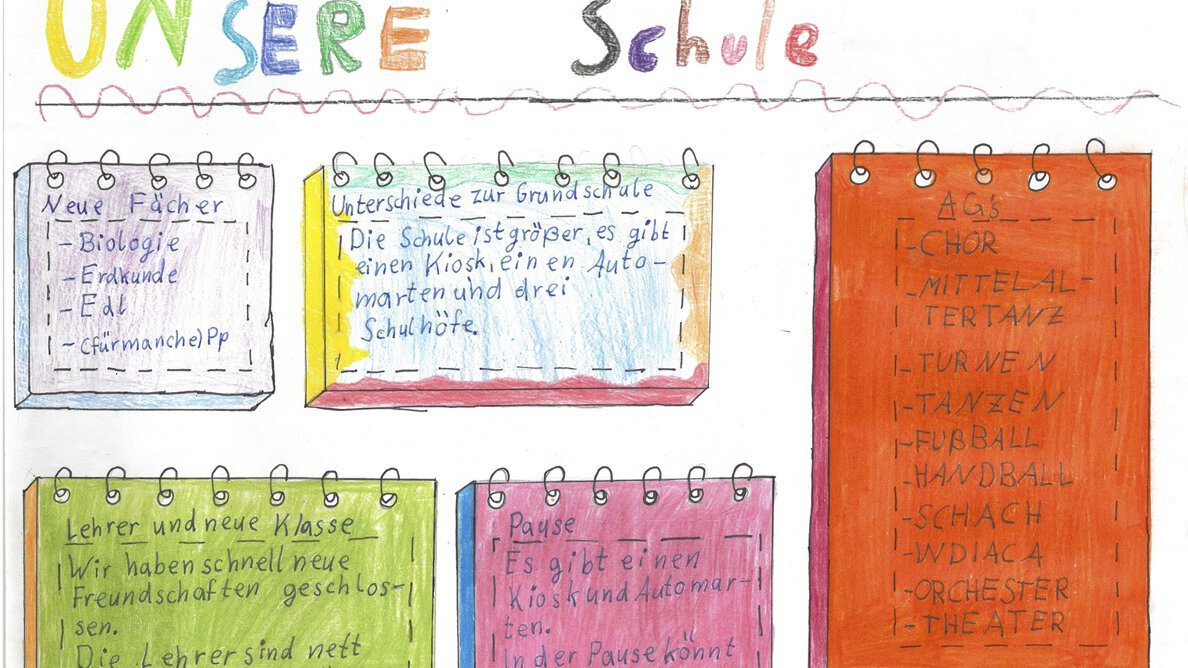 UNSERE Schule
Neue Fächer
- Biologie
- Erdkunde
- Edl
- (fürmanche)Pp
Unterschiede zur Grundschule
Die Schule ist größer, es gibt
einen Kiosk, einen Auto-
marten und drei
Schulhöfe.
AG's
- CHOR
- MITTELAL-
TERTANZ
- TURNEN
- TANZEN
- FUßBALL
HANDBALL
- SCHACH
- WDIACA
- ORCHESTER
- THEATER
Lehrer und neue Klasse
Wir haben schnell neue
Freundschaften geschlos-
sen.
Die Lehrer sind nett
Pause
Es gibt einen
Kiosk und Automar-
ten.
In der Pause könnt